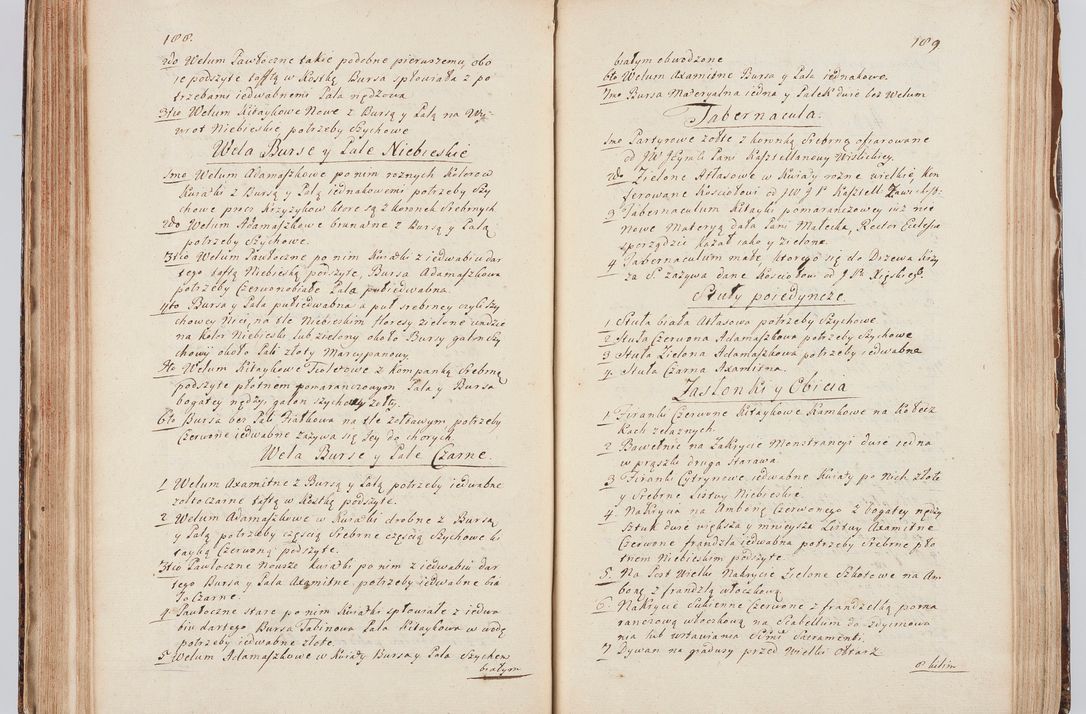 188.
2do Welum Pawłoczne takie podobne pierwszemu, obo
ie podszyte taftą w Kostkę Bursa spłowiała z po
trzebami iedwabnemi Pala nędzowa
3tio Welum Kitaykowe Nowe z Bursą y Palą na Wy:
wrot Niebieskie, potrzeby Szychowe
Wela Burse y Pale Niebieskie
1mo Welum Adamaszkowe po nim roznych Kolorow
Kwiatki z Bursą y Palą iednakowemi potrzeby Szy
chowe precz Krzyzykow ktore są z koronek Srebrnych
2do Welum Adamaszkowe brunatne z Bursą y Palą
potrzeby Szychowe.
3tio Welum Pawłoczne po nim Kwiatki z iedwabiu dar
tego taftą Niebieską podszyte, Bursa Adamaszkowa
potrzeby Czerwonobiałe Pala pułiedwabna.
4to Bursa y Pala pułiedwabna a puł srebrney czyli Szy
chowey Nici, na tle Niebieskim floresy zielone
na kolor Niebieski lub zielony około Bursy galon Szy
chowy około Pali złoty Marcypanowy.
5to Welum Kitaykowe Fioletowe z kompanką Srebrną
podszyte płotnem pomaranczowym Pala y Bursa
bogatey nędzy, galon szychowy zołty.
6to Bursa bez Pali Fiałkowa na tle zołtawym potrzeby
Czerwone iedwabne zazywa się Jey do chorych.
Wela Burse y Pale Czarne.
1 Welum Axamitne z Bursą y Palą potrzeby iedwabne
zołto czarne taftą w Kostkę podszyte.
2 Welum Adamaszkowe w Kwiatki drobne z Bursą
y Palą potrzeby częscią Srebrne częscią Szychowe ki
tayką Czerwoną podszyte.
3tio Pawłoczne Nowsze kwiatki po nim z iedwabiu dar
tego Bursa y Pala Axamitne, potrzeby iedwabne bia
ło Czarne.
4 Pawłoczne stare po nim Kwiatki spłowiałe z iedwa
biu dartego Bursa Tabinowa Pala Kitaykowa w wodę
potrzeby iedwabne złote.
5 Welum Adamaszkowe w Kwiaty Bursa y Pala Szychem
białym
189
białym obwodzone
6to Welum Axamitne Bursa y Pala iednakowe.
7mo Bursa Materyalna iedna y Palek dwie bez Welum
Tabernacula.
1mo Partyrowe zołte z koronką Srebrną ofiarowane
od JW Jeymci Pani Kasztellanowy Wislickiey.
2do Zielone Atłasowe w Kwiaty rozne wielkie, kon
ferowane Kosciołowi od JW J P Kasztell Zawichos:
3 Tabernaculum Kitayki pomaranczowey iuz nie
Nowe Materyą dała Pani Małecka, Rector Eclesiæ
sporządzic kazał iako y Zielone.
4 Tabernaculum małe, ktorego się do Drzewa Krzy
za S. zazywa dane Kosciołowi od J P.
Stuły poiedyncze.
1 Stuła biała Atłasowa potrzeby Szychowe
2 Stuła Czerwona Adamaszkowa potrzeby Szychowe
3 Stuła Zielona Adamaszkowa potrzeby iedwabne
4 Stuła Czarna Axamitna.
Zasłonki y Obicia
1 Firanki Czerwone Kitaykowe Ramkowe na Kołecz
kach zelaznych.
2 Bawełnic na Zakrycie Monstrancyi dwie iedna
w prązki druga Starawa.
3 Firanki Cytrynowe iedwabne Kwiaty po Nich złote
y Srebrne Listwy Niebieskie.
4 Nakrycia na Ambonę Czerwonego z bogatey nędzy
Sztuk dwie większa y mnieysza Listwy Axamitne
Czerwone frandzla iedwabna potrzeby Srebrne pło
tnem Niebieskim podszyte.
5 Na Post Wielki Nakrycie Zielone Szkotowe na Am
bonę, z frandzlą włoczkową.
6 Nakrycie Sukienne Czerwone z frandzelką poma
ranczową włoczkową na Scabellum do zdymowa
nia lub wstawiania SSmi Sacramenti.
7 Dywan na gradusy przed Wielki Ołtarz
8 kilim